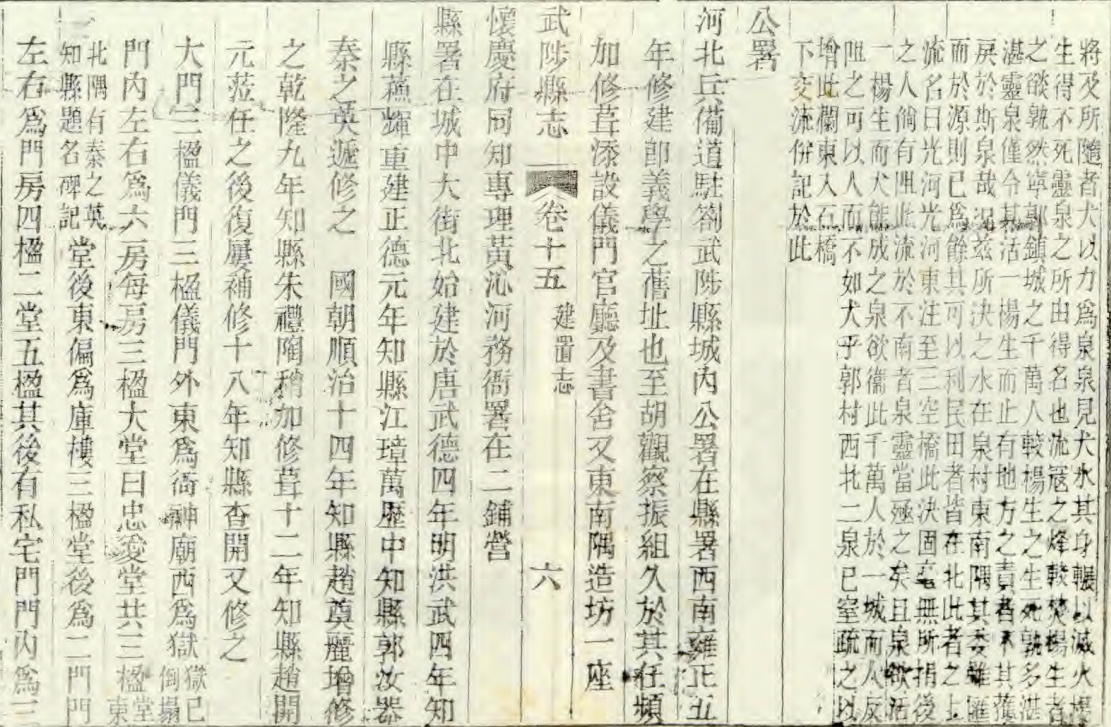 將及所隨者犬以力爲泉泉見犬水其身輾以滅火楊
生得不死靈泉之所由得名也流寇之烽較焚楊生者
之燄孰然寧郭鎮城之千萬人較楊生之生死孰多湛
湛靈泉僅令其活一楊生而止有地方之責者不其
戾於斯泉哉況茲所決之水在泉村東南隅其委雖匯
而於源則已爲餘其可以利民田者皆在北此者之上
流名曰光河光河東注至三空橋此決固毫無所損後
之人倘有阻此流於不南者泉靈當殛之矣且泉欲活
一楊生而犬能成之泉欲衞此千萬人於一城而人反
阻之可以人而不如犬乎郭村西北二泉已室疏之以
增此欄東入石橋
下交流併記於此
公署
河北兵備道駐劄武陟縣城內公署在縣署西南雍正五
年修建卽義學之舊址也至胡觀察振組久於其任頻
加修葺添設儀門官廳及書舍又東南隅造坊一座
武陟縣志 卷十五 建置志 六
懷慶府同知專理黃沁河務衙署在二鋪營
縣署在城中大街北始建於唐武德四年明洪武四年知
縣蘓輝重建正德元年知縣江璋萬歷中知縣郭汝器
秦之英遞修之 國朝順治十四年知縣趙奠麗增修
之乾隆九年知縣朱禮隯稍加修葺十二年知縣趙開
元蒞任之後復屢補修十八年知縣查開又修之
大門三楹儀門三楹儀門外東爲衙神廟西爲獄獄已倒塌
門內左右爲六房每房三楹大堂曰忠愛堂共三楹堂東
北隅有秦之英知縣題名碑記堂後東偏爲庫樓三楹堂後爲二門門
左右爲門房四楹二堂五楹其後有私宅門門內爲三